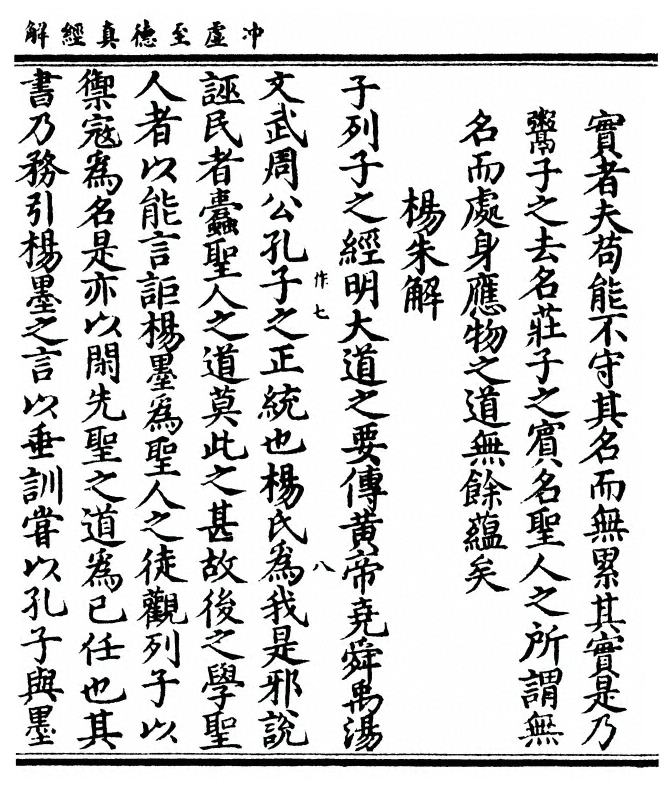 冲虛至德真經解
實者夫苟能不守其名而無累其實是乃
鬻子之去名莊子之賓名聖人之所謂無
名而處身應物之道無餘蘊矣
楊朱解
子列子之經明大道之要傳黃帝堯舜禹湯
作七
八
文武周公孔子之正統也楊氏為我是邪說
誣民者蠹聖人之道莫此之甚故後之學聖
人者以能言詎楊墨為聖人之徒觀列子以
禦寇為名是亦以閑先聖之道為己任也其
書乃務引楊墨之言以垂訓嘗以孔子與墨